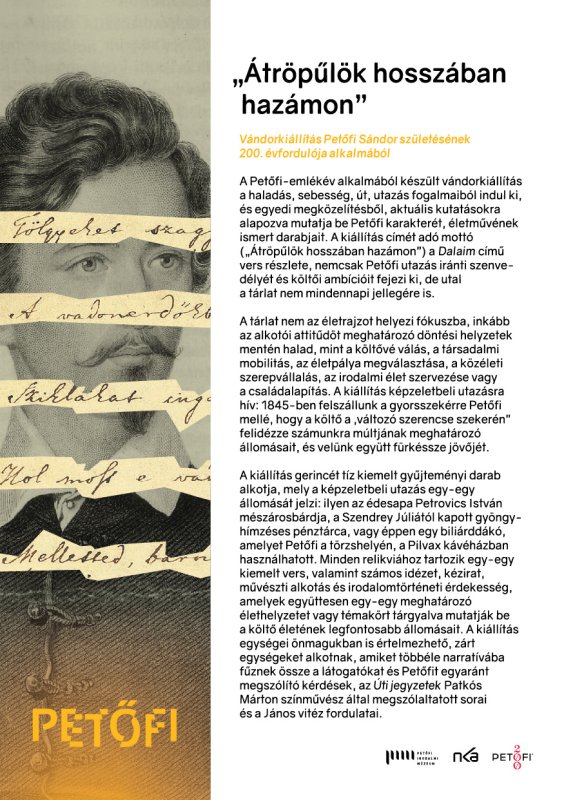 „Átröpűlök hosszában
hazámon”
Vándorkiállítás Petőfi Sándor születésének
200. évfordulója alkalmából
A Petőfi-emlékév alkalmából készült vándorkiállítás
a haladás, sebesség, út, utazás fogalmaiból indul ki,
és egyedi megközelítésből, aktuális kutatásokra
alapozva mutatja be Petőfi karakterét, életművének
ismert darabjait. A kiállítás címét adó mottó
(„Átröpűlök hosszában hazámon”) a Dalaim című
vers részlete, nemcsak Petőfi utazás iránti szenve-
délyét és költői ambícióit fejezi ki, de utal
a tárlat nem mindennapi jellegére is.
A tárlat nem az életrajzot helyezi fókuszba, inkább
az alkotói attitűdöt meghatározó döntési helyzetek
mentén halad, mint a költővé válás, a társadalmi
mobilitás, az életpálya megválasztása, a közéleti
szerepvállalás, az irodalmi élet szervezése vagy
a családalapítás. A kiállítás képzeletbeli utazásra
hív: 1845-ben felszállunk a gyorsszekérre Petőfi
mellé, hogy a költő a ‚változó szerencse szekerén”
felidézze számunkra múltjának meghatározó
állomásait, és velünk együtt fürkéssze jövőjét.
A kiállítás gerincét tíz kiemelt gyűjteményi darab
alkotja, mely a képzeletbeli utazás egy-egy
állomását jelzi: ilyen az édesapa Petrovics István
mészárosbárdja, a Szendrey Júliától kapott gyöngy-
hímzéses pénztárca, vagy éppen egy biliárddákó,
amelyet Petőfi a törzshelyén, a Pilvax kávéházban
használhatott. Minden relikviához tartozik egy-egy
kiemelt vers, valamint számos idézet, kézirat,
művészti alkotás és irodalomtörténeti érdekesség,
amelyek együttesen egy-egy meghatározó
élethelyzetet vagy témakört tárgyalva mutatják be
a költő életének legfontosabb állomásait. A kiállítás
egységei önmagukban is értelmezhető, zárt
egységeket alkotnak, amiket többéle narratívába
fűznek össze a látogatókat és Petőfit egyaránt
megszólító kérdések, az Úti jegyzetek Patkós
Márton színművész által megszólaltatott sorai
és a János vitéz fordulatai.
Tölgyeket szagg
A vadonerdőkb
Sziklákat inga
Hol most e vá
Melletted, baro
PETŐFI
PETŐFI
IRODALMI
MÚZEUM
nka
PETŐFI
200